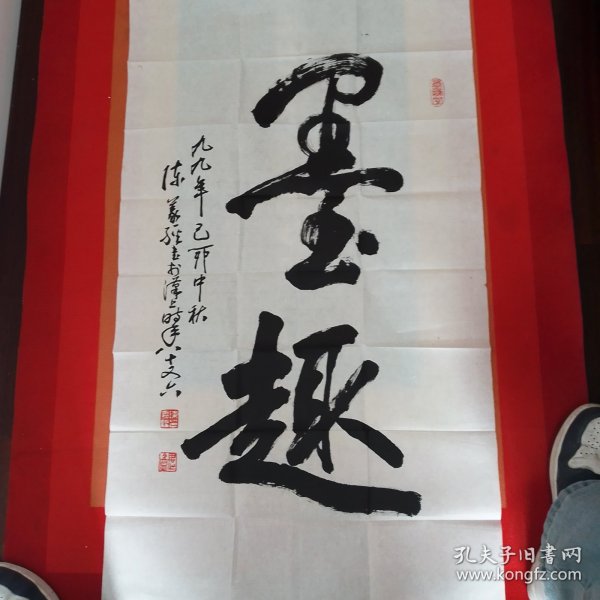 墨趣
九九年己卯中秋
陈义经书于汉上时年八十又六
孔夫子旧书网
www.kongfz.com